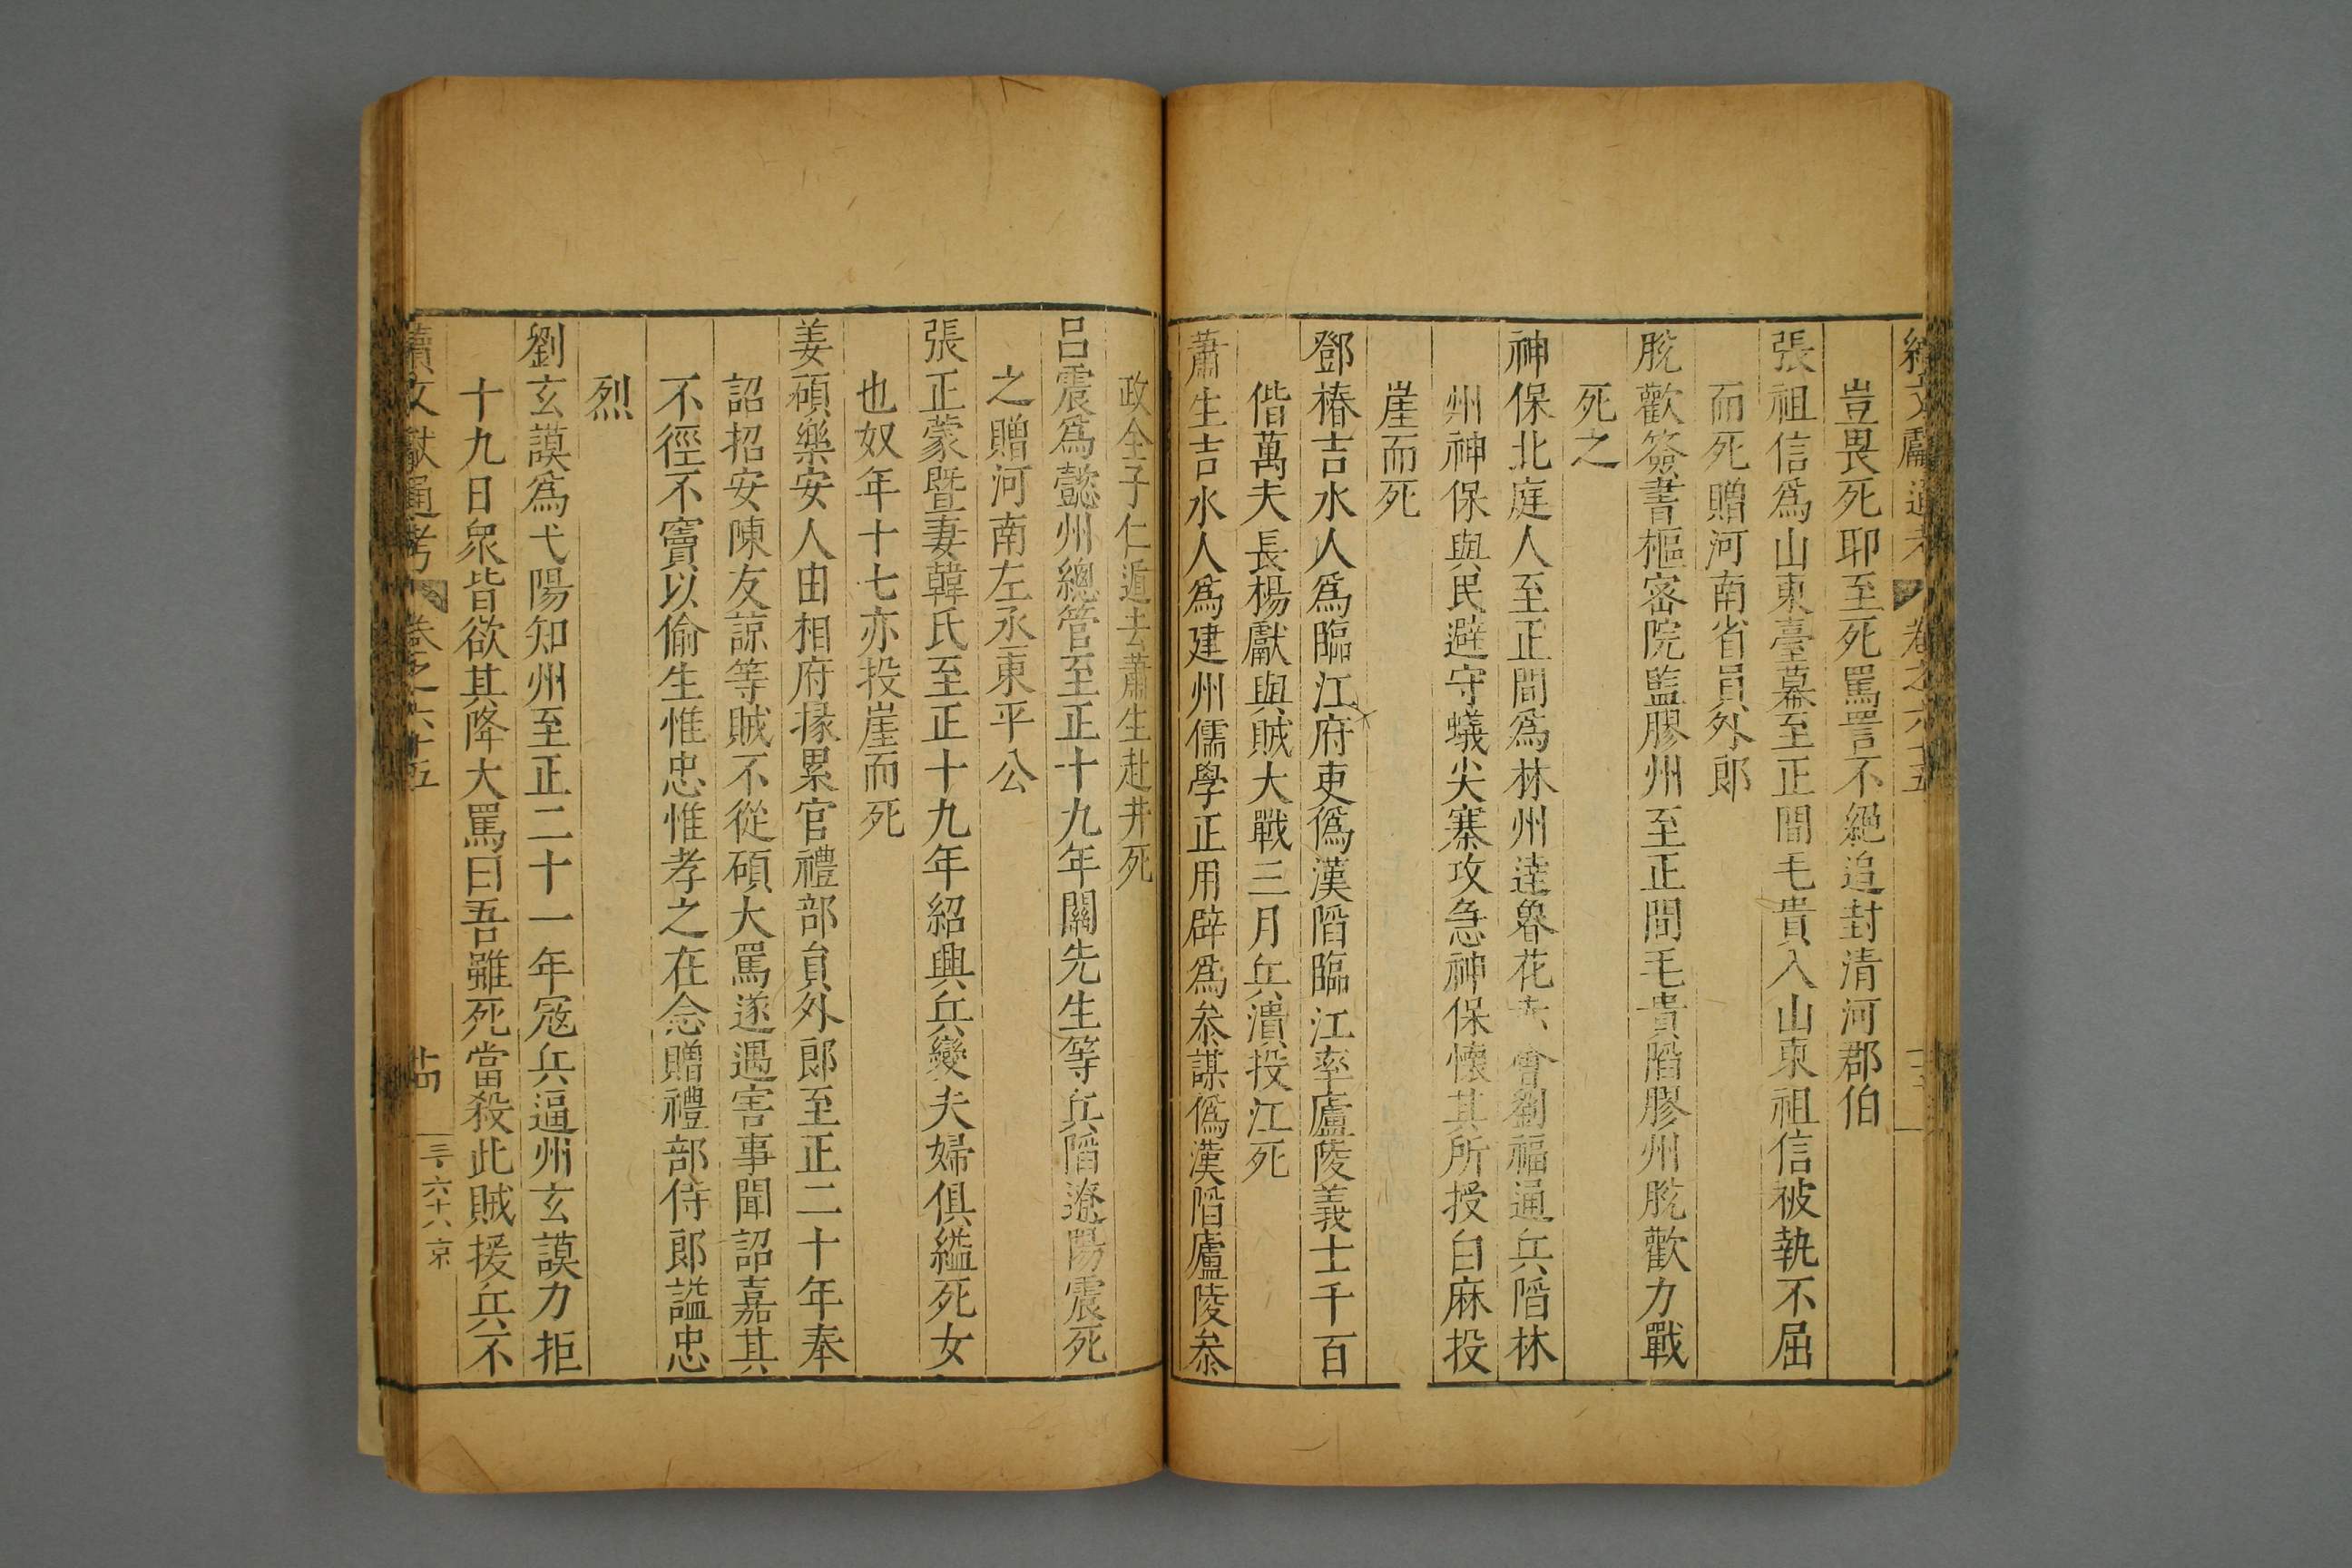 續文獻通考 卷之六十五
豈畏死耶至死罵詈不絕追封清河郡伯
張祖信爲山東臺幕至正間毛貴入山東祖信被執不屈
而死贈河南省員外郎
脫歡簽書樞密院監膠州至正間毛貴陷膠州脫歡力戰
死之
神保北庭人至正間爲林州達魯花赤會劉福通兵陷林
州神保與民避守蟻尖寨攻急神保懷其所授白麻投
崖而死
鄧椿吉水人爲臨江府吏僞漢陷臨江率廬陵義士千百
偕萬夫長楊獻與賊大戰三月兵潰投江死
蕭生吉水人爲建州儒學正用辟爲叅謀僞漢陷廬陵叅
政全子仁遁去蕭生赴井死
呂震爲懿州總管至正十九年關先生等兵陷遼陽震死
之贈河南左丞東平公
張正蒙暨妻韓氏至正十九年紹興兵變夫婦俱縊死女
也奴年十七亦投崖而死
姜碩樂安人由相府掾累官禮部員外郎至正二十年奉
詔招安陳友諒等賊不從碩大罵遂遇害事聞詔嘉其
不徑不竇以偷生惟忠惟孝之在念贈禮部侍郎謚忠
烈
劉玄謨爲弋陽知州至正二十一年寇兵逼州玄謨力拒
十九日衆皆欲其降大罵曰吾雖死當殺此賊援兵不
續文獻通考 卷之六十五 卄四 三 六十八 京